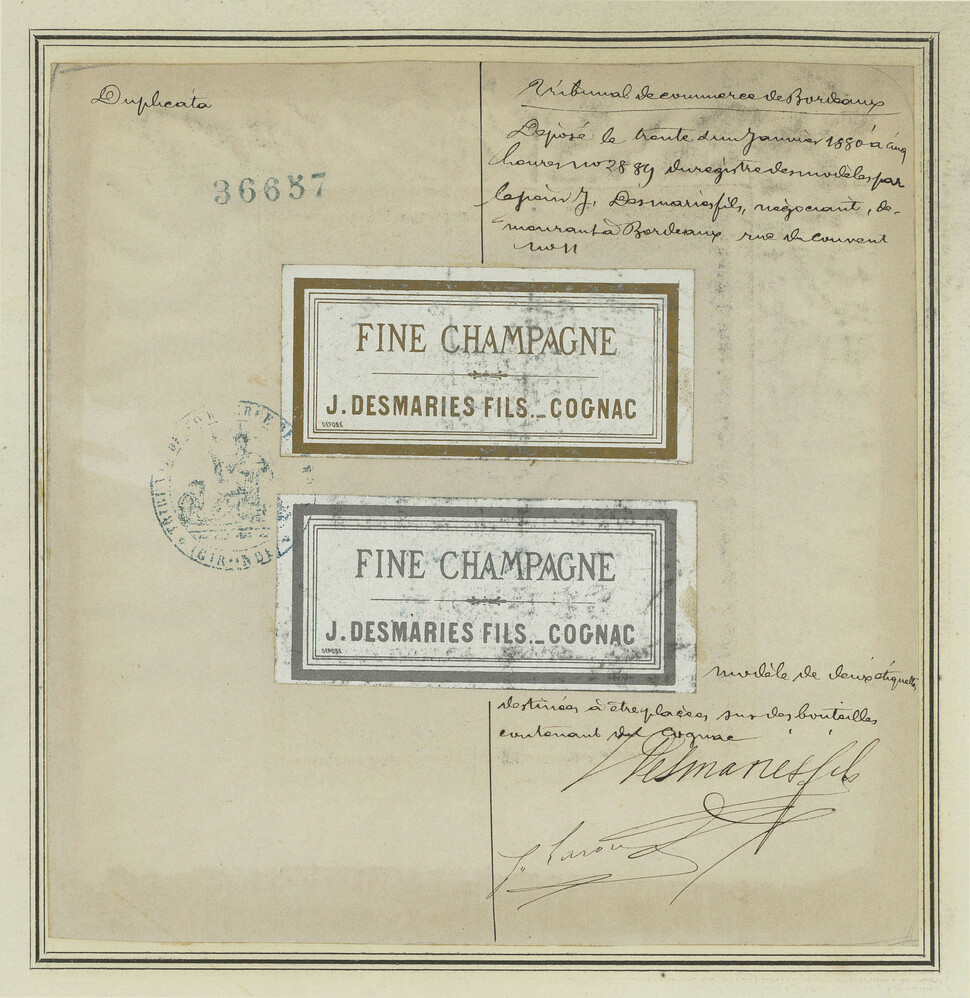 Duplicata
Tribunal de commerce de Bordeaux
Déposé le trente d'un Janvier 1880 à cinq
heures no 2889 du registre des modèles par
J. Desmaries fils, négociant, de-
mourant à Bordeaux rue du Couvent
no 11
36657
FINE CHAMPAGNE
J. DESMARIES FILS._COGNAC
DÉPOSÉ
(GIRONDE)
FINE CHAMPAGNE
J. DESMARIES FILS._COGNAC
DÉPOSÉ
modèle de deux étiquettes
destinées à être placées sur des bouteilles
contenant du Cognac
Desmaries fils